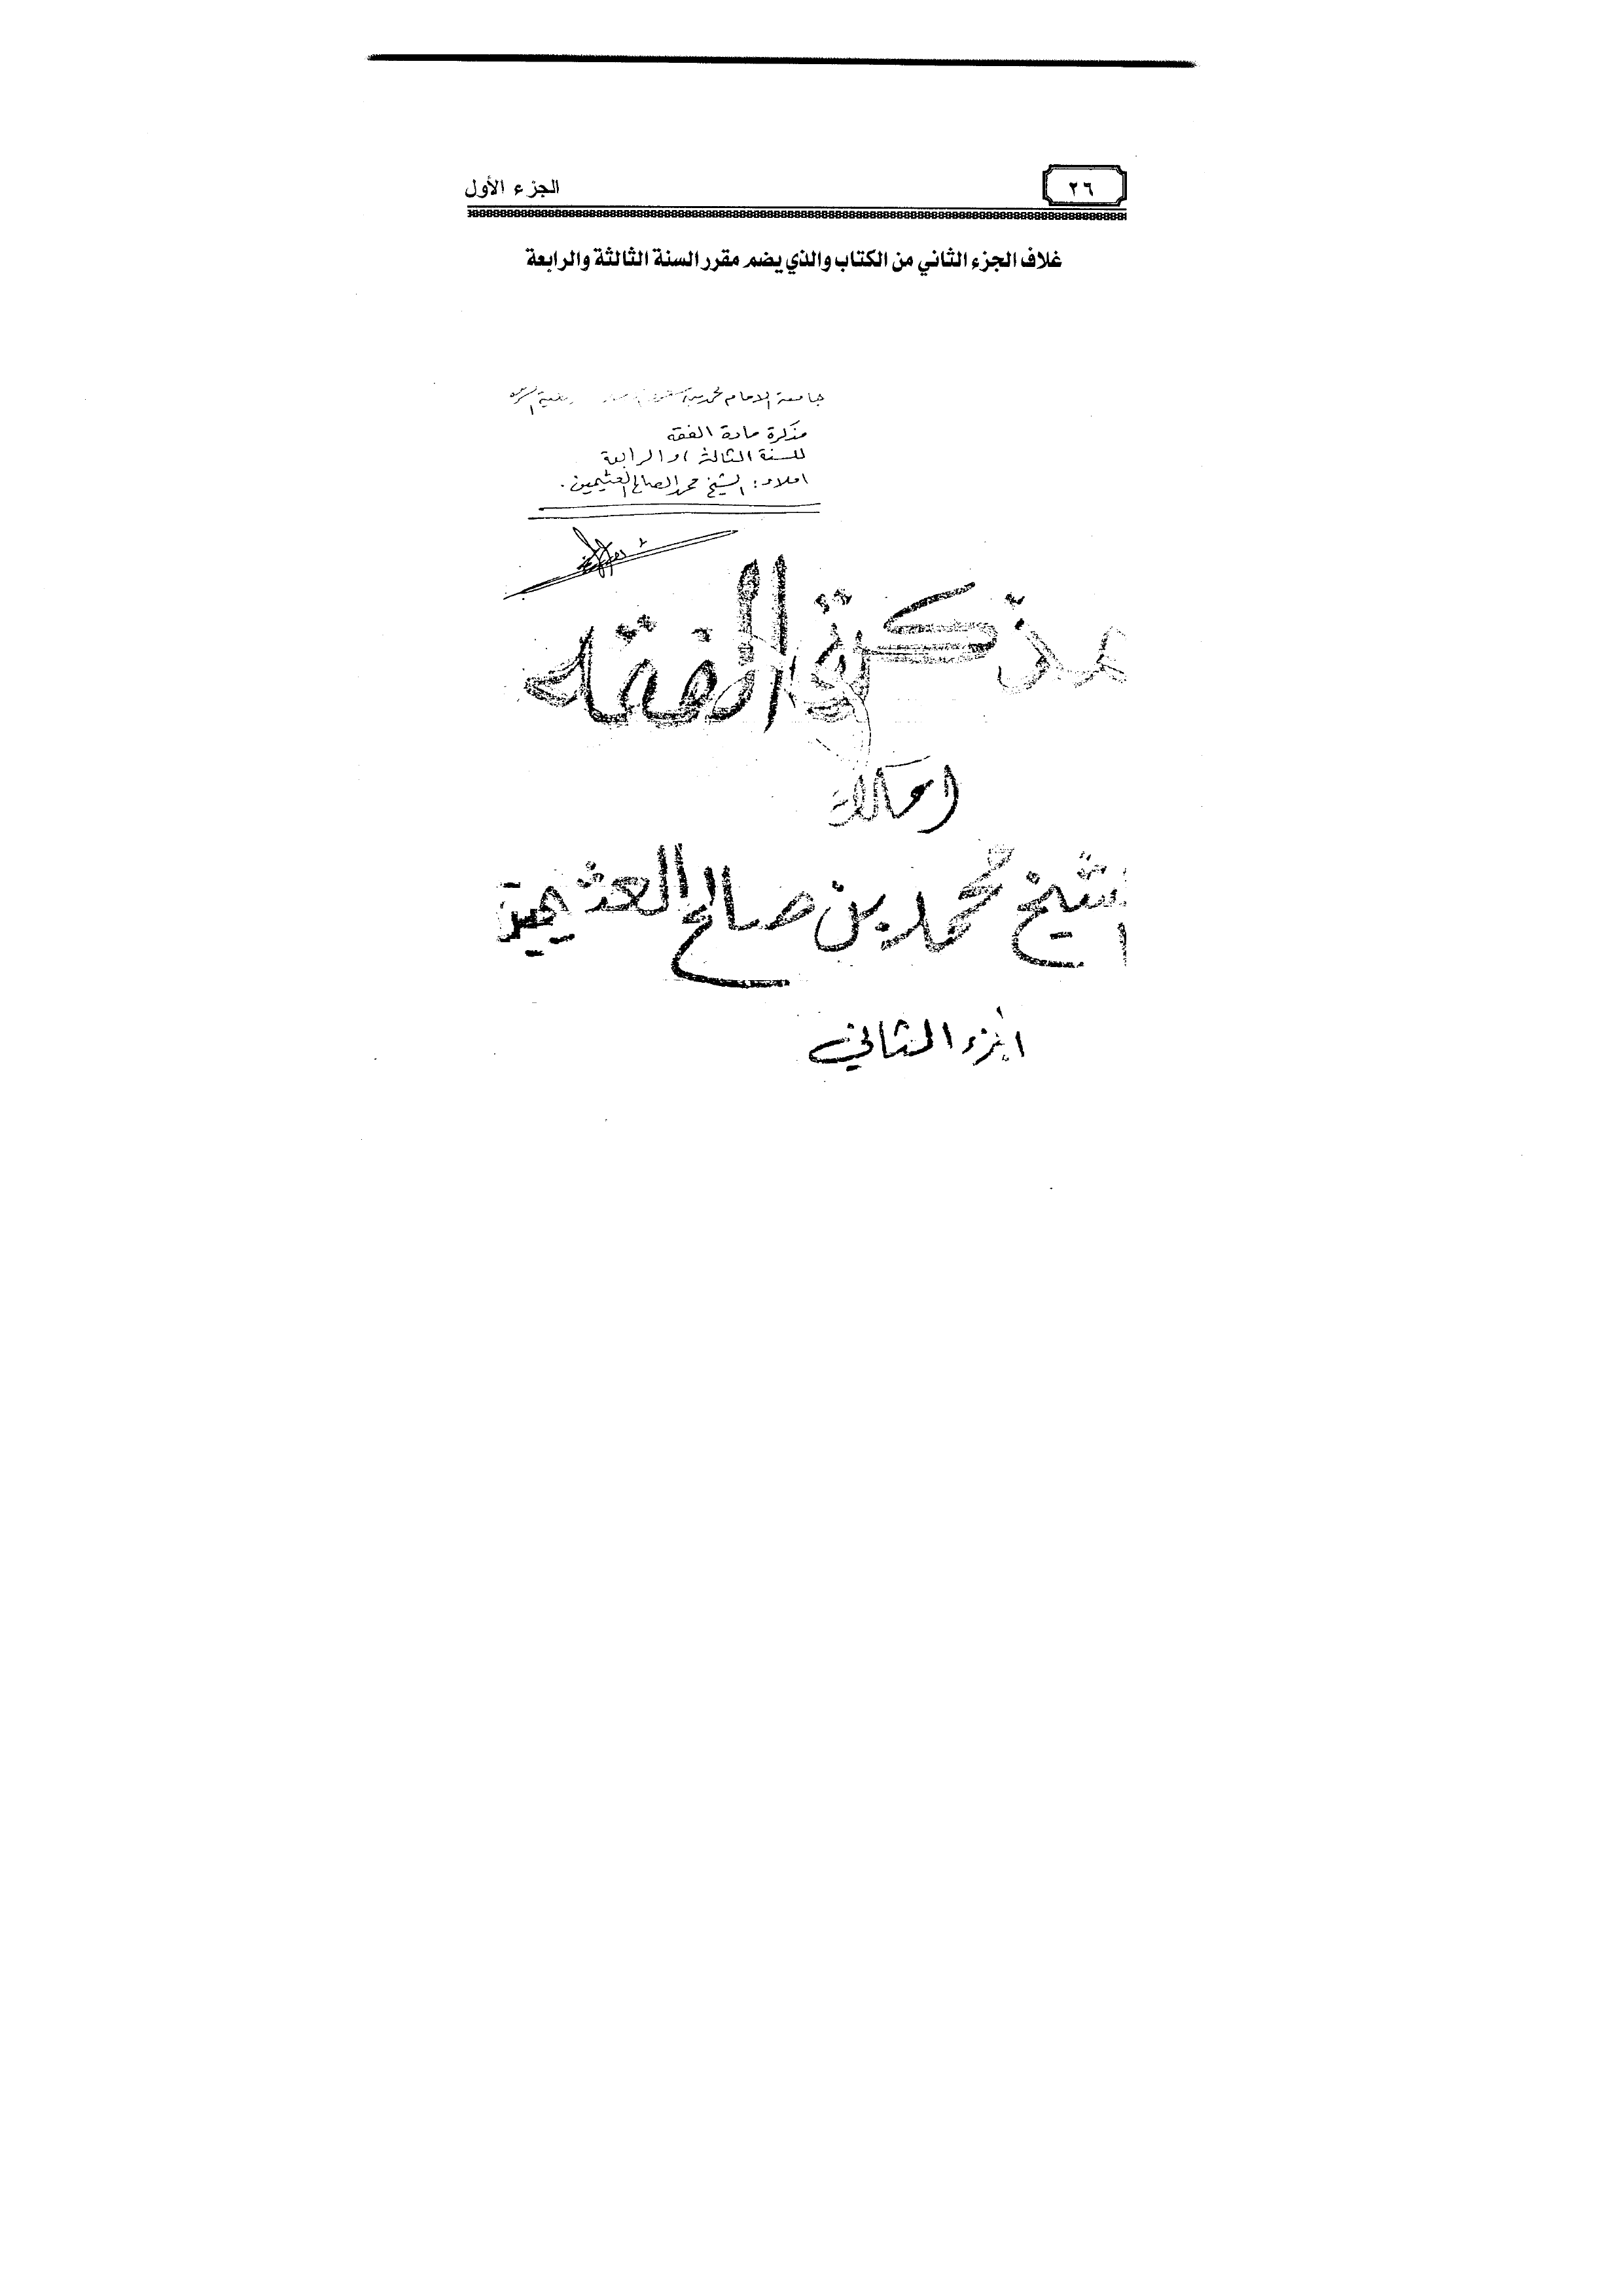 ٢٦
الجزء الأول
غلاف الجزء الثاني من الكتاب والذي يضم مقرر السنة الثالثة والرابعة
جامعة الامام محمد بن
مذكرة مادة الفقه
للسنة الثالثة والرابعة
املاء: الشيخ محمد الصالح العثيمين.
مذكرة الفقه
الشيخ محمد بن صالح العثيمين
الجزء الثاني